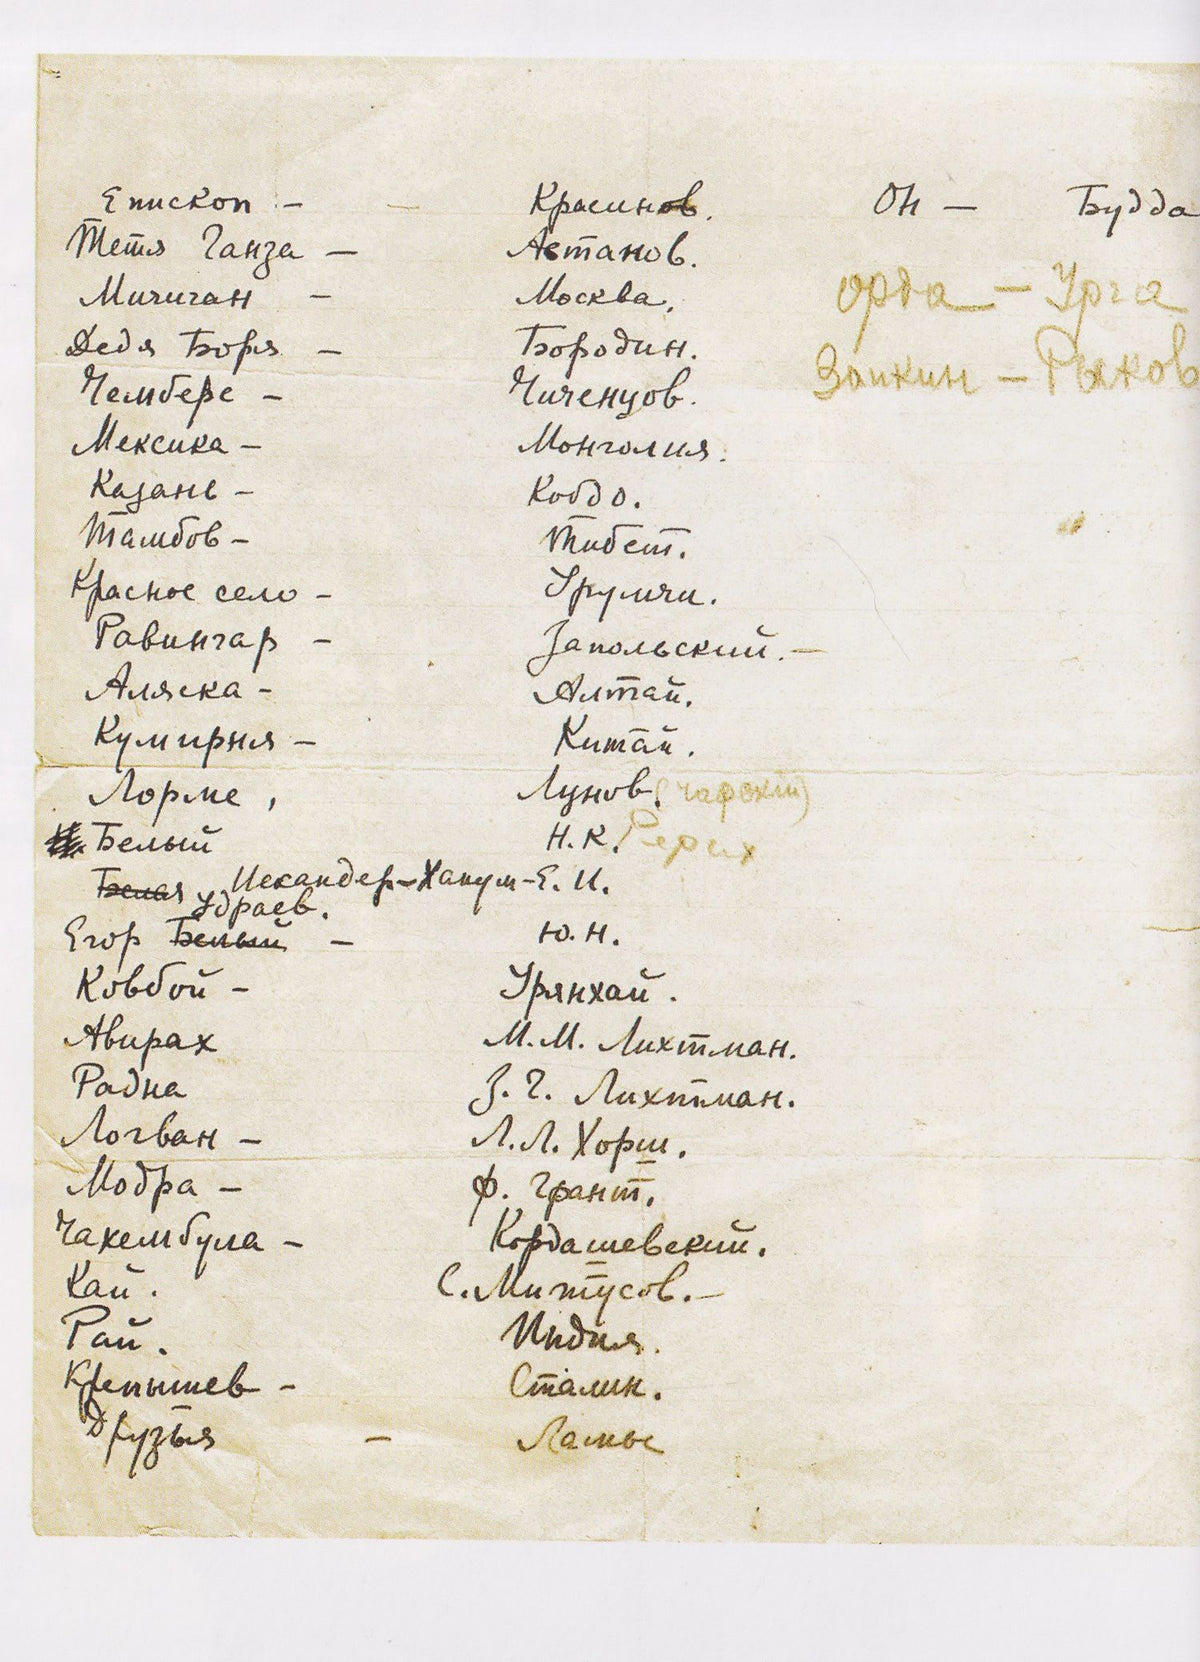 Епископ - - Красинов. Он - Будда
Тетя Ганза - Астанов.
Мичиган - Москва. Орда - Урга
Дедя Боря - Бородин. Заикин - Рыков
Чемберс - Чиченцов.
Мексика - Монголия.
Казань - Кобдо.
Тамбов - Тибет.
Красное село - Урумчи.
Равингар - Запольский. -
Аляска - Алтай.
Кумирня - Китай.
Лорме, Лунов.
Белый Н.К. Рерих
Белая Искандер-Ханум - Е. И.
Удраев.
Егор Белый - Ю. Н.
Ковбой - Урянхай.
Авирах М.М. Лихтман.
Радна З. Г. Лихтман.
Логван - Л.Л. Хорш.
Модра - Ф. Грант.
Чахембула - Кордашевский.
Кай. С. Митусов. -
Рай. Индия.
Крепышев - Сталин.
Друзья - Ламы